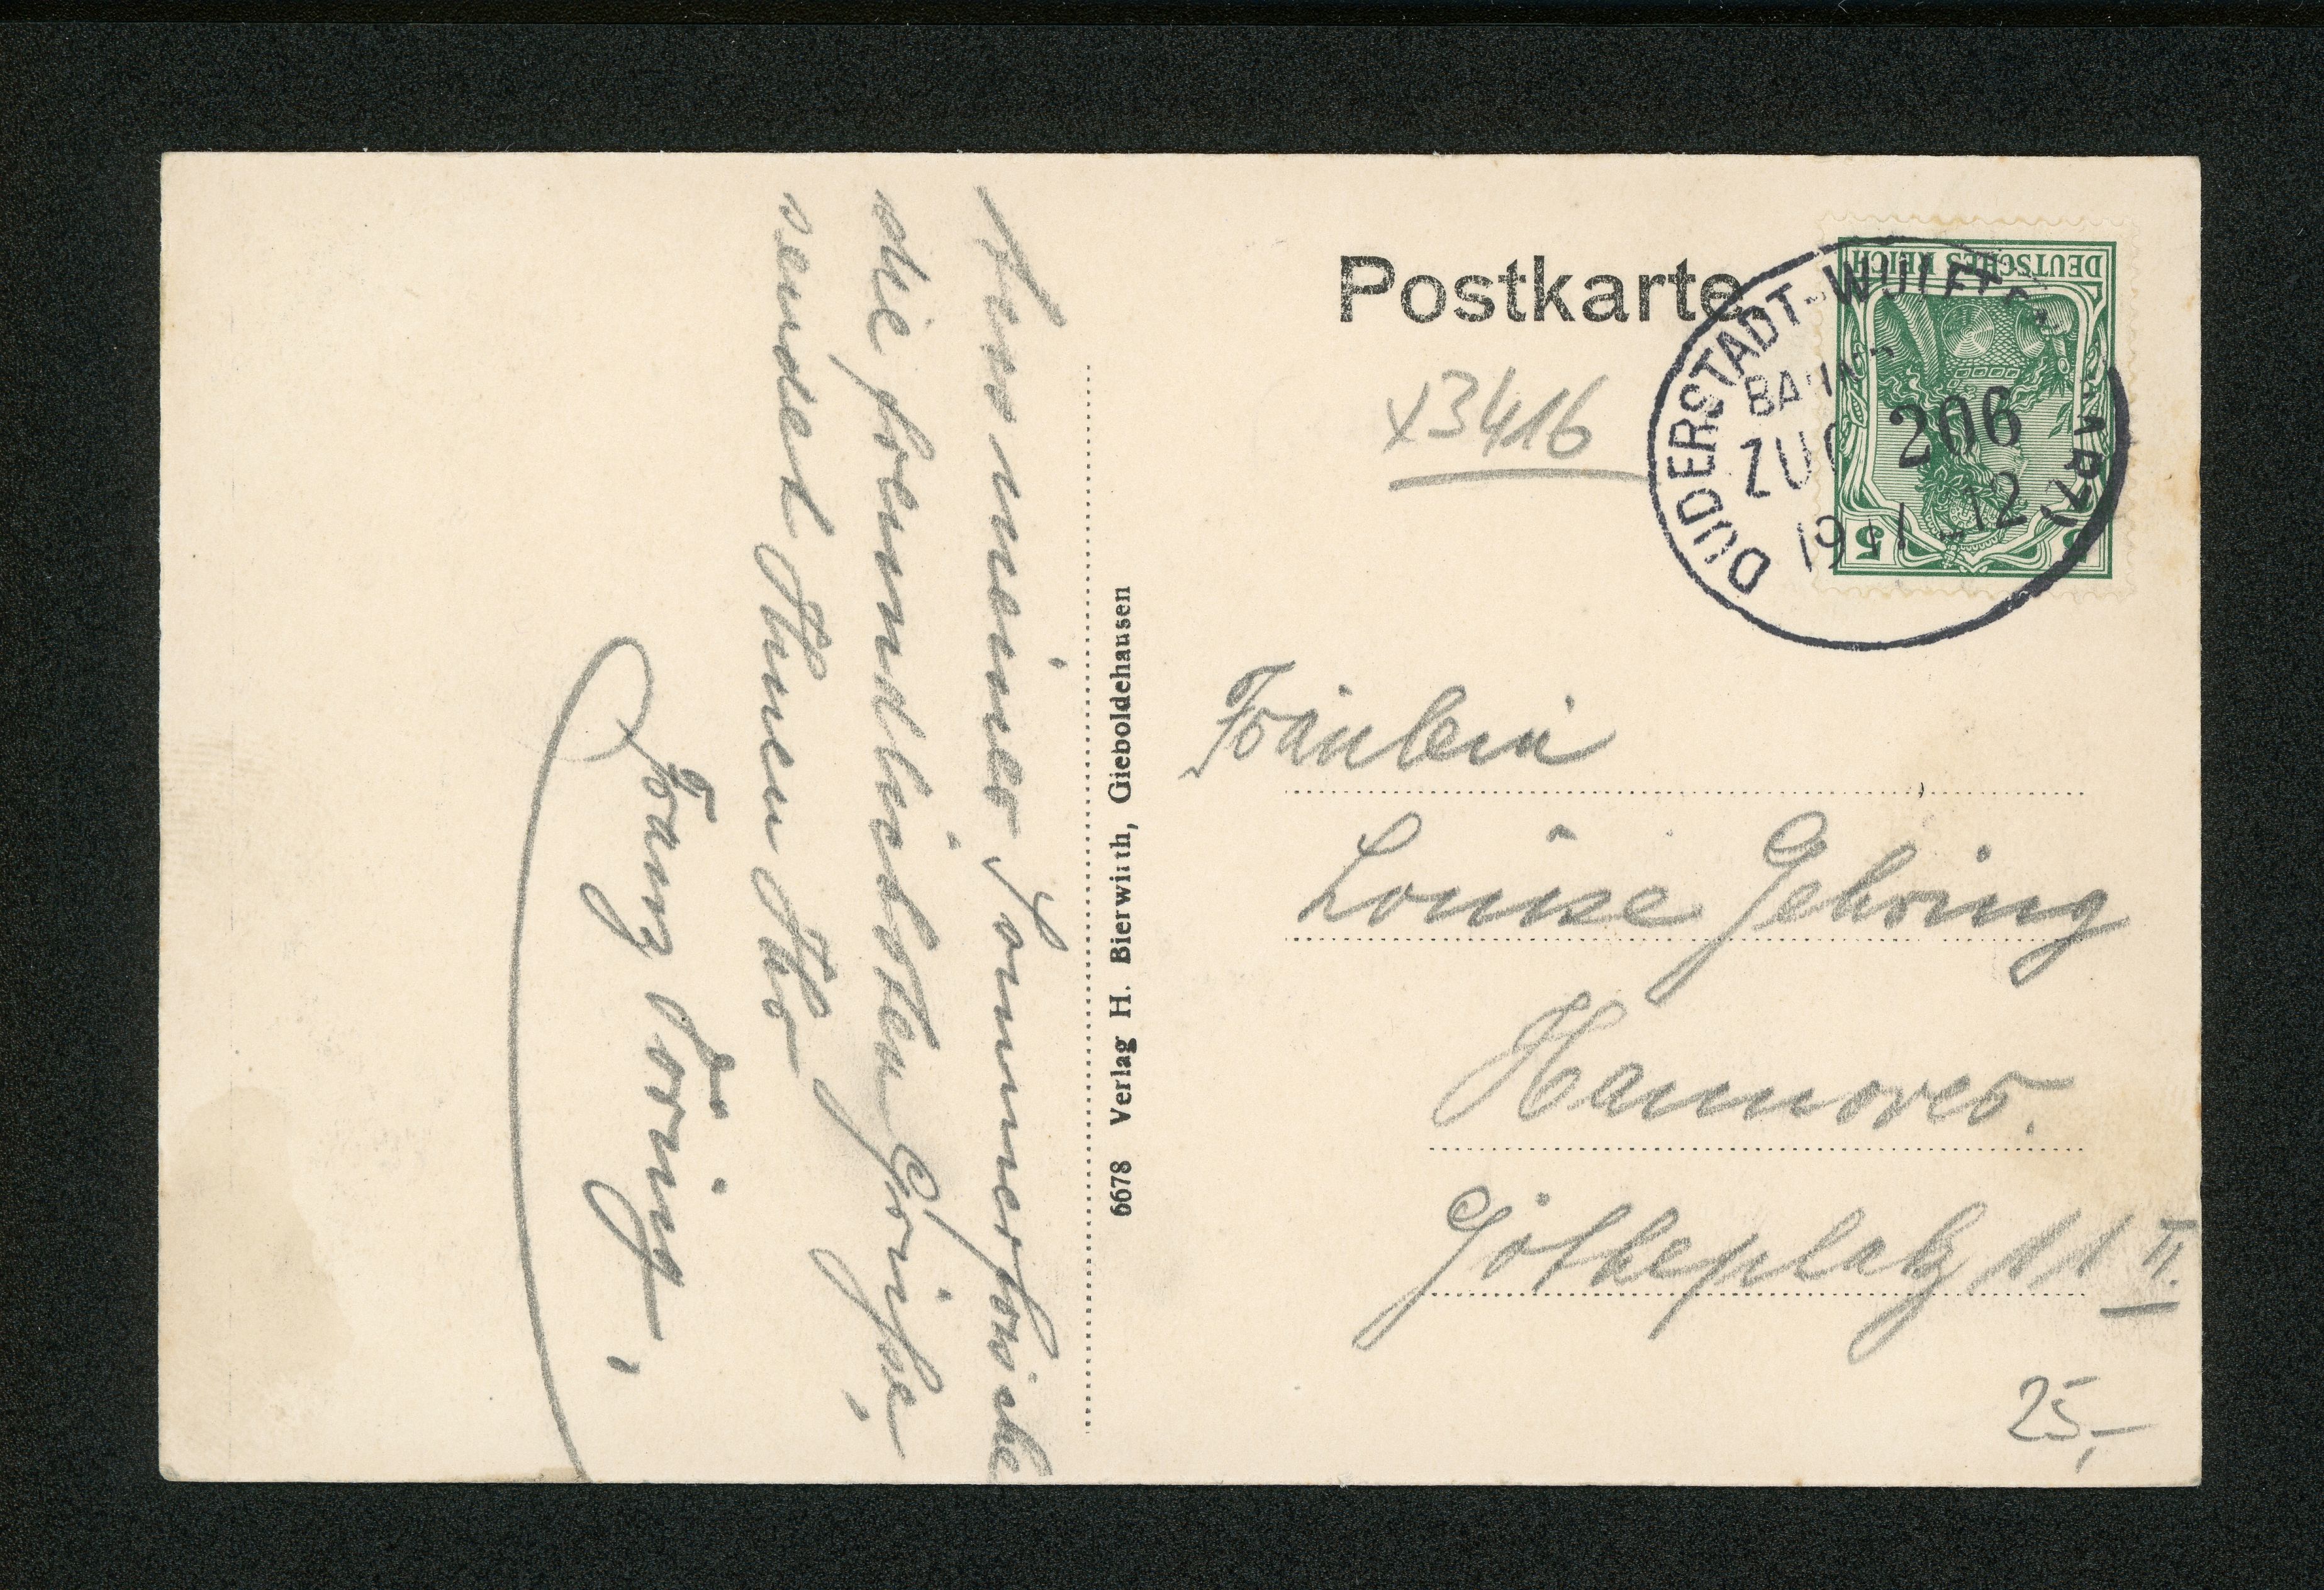 Aus meiner Sommerfrische
die freundlichsten Grüsse,
sendet Ihnen Ihr
Franz Döring,
6678 Verlag H. Bierwirth, Gieboldehausen
Postkarte
x3416
DEUTSCHES REICH
5 5
DUDERSTADT-WULFT
BAHNP
ZUG 206
12
Fräulein
Louise Gehring
Hannover.
Götheplatz 11 II.
25,-